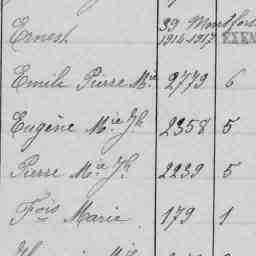 Ernest 39 Montfort
1914-1917 EXEM
Emile Pierre Mie 2779 6
Eugène Mie Jh 2358 5
Pierre Mie Jh 2239 5
Fois Marie 179 1